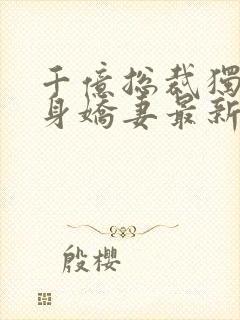 千億總裁獨
身嬌妻最新
殷櫻